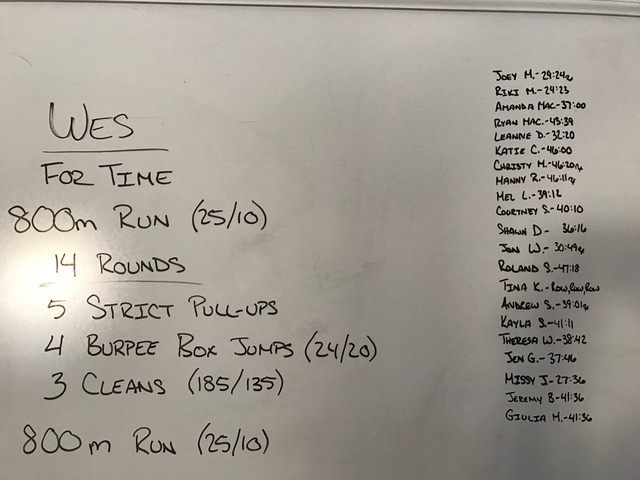 WES
FOR TIME
800m RUN (25/10)
14 ROUNDS
5 STRICT PULL-UPS
4 BURPEE BOX JUMPS (24/20)
3 CLEANS (185/135)
800m RUN (25/10)
JOEY M.- 29:24rx
RIKI M.- 24:23
AMANDA MAC.- 37:00
RYAN MAC.- 43:39
LEANNE D.- 32:20
KATIE C.- 46:00
CHRISTY M.- 46:20rx
MANNY R.- 46:11rx
MEL L.- 39:12
COURTNEY S.- 40:10
SHAWN D- 36:16
JON W.- 30:49rx
ROLAND S.- 47:18
TINA K.- ROW, ROW, ROW
ANDREW S.- 39:01rx
KAYLA S.- 41:11
THERESA W.- 38:42
JEN G.- 37:46
MISSY J- 27:36
JEREMY B- 41:36
GIULIA M.- 41:36